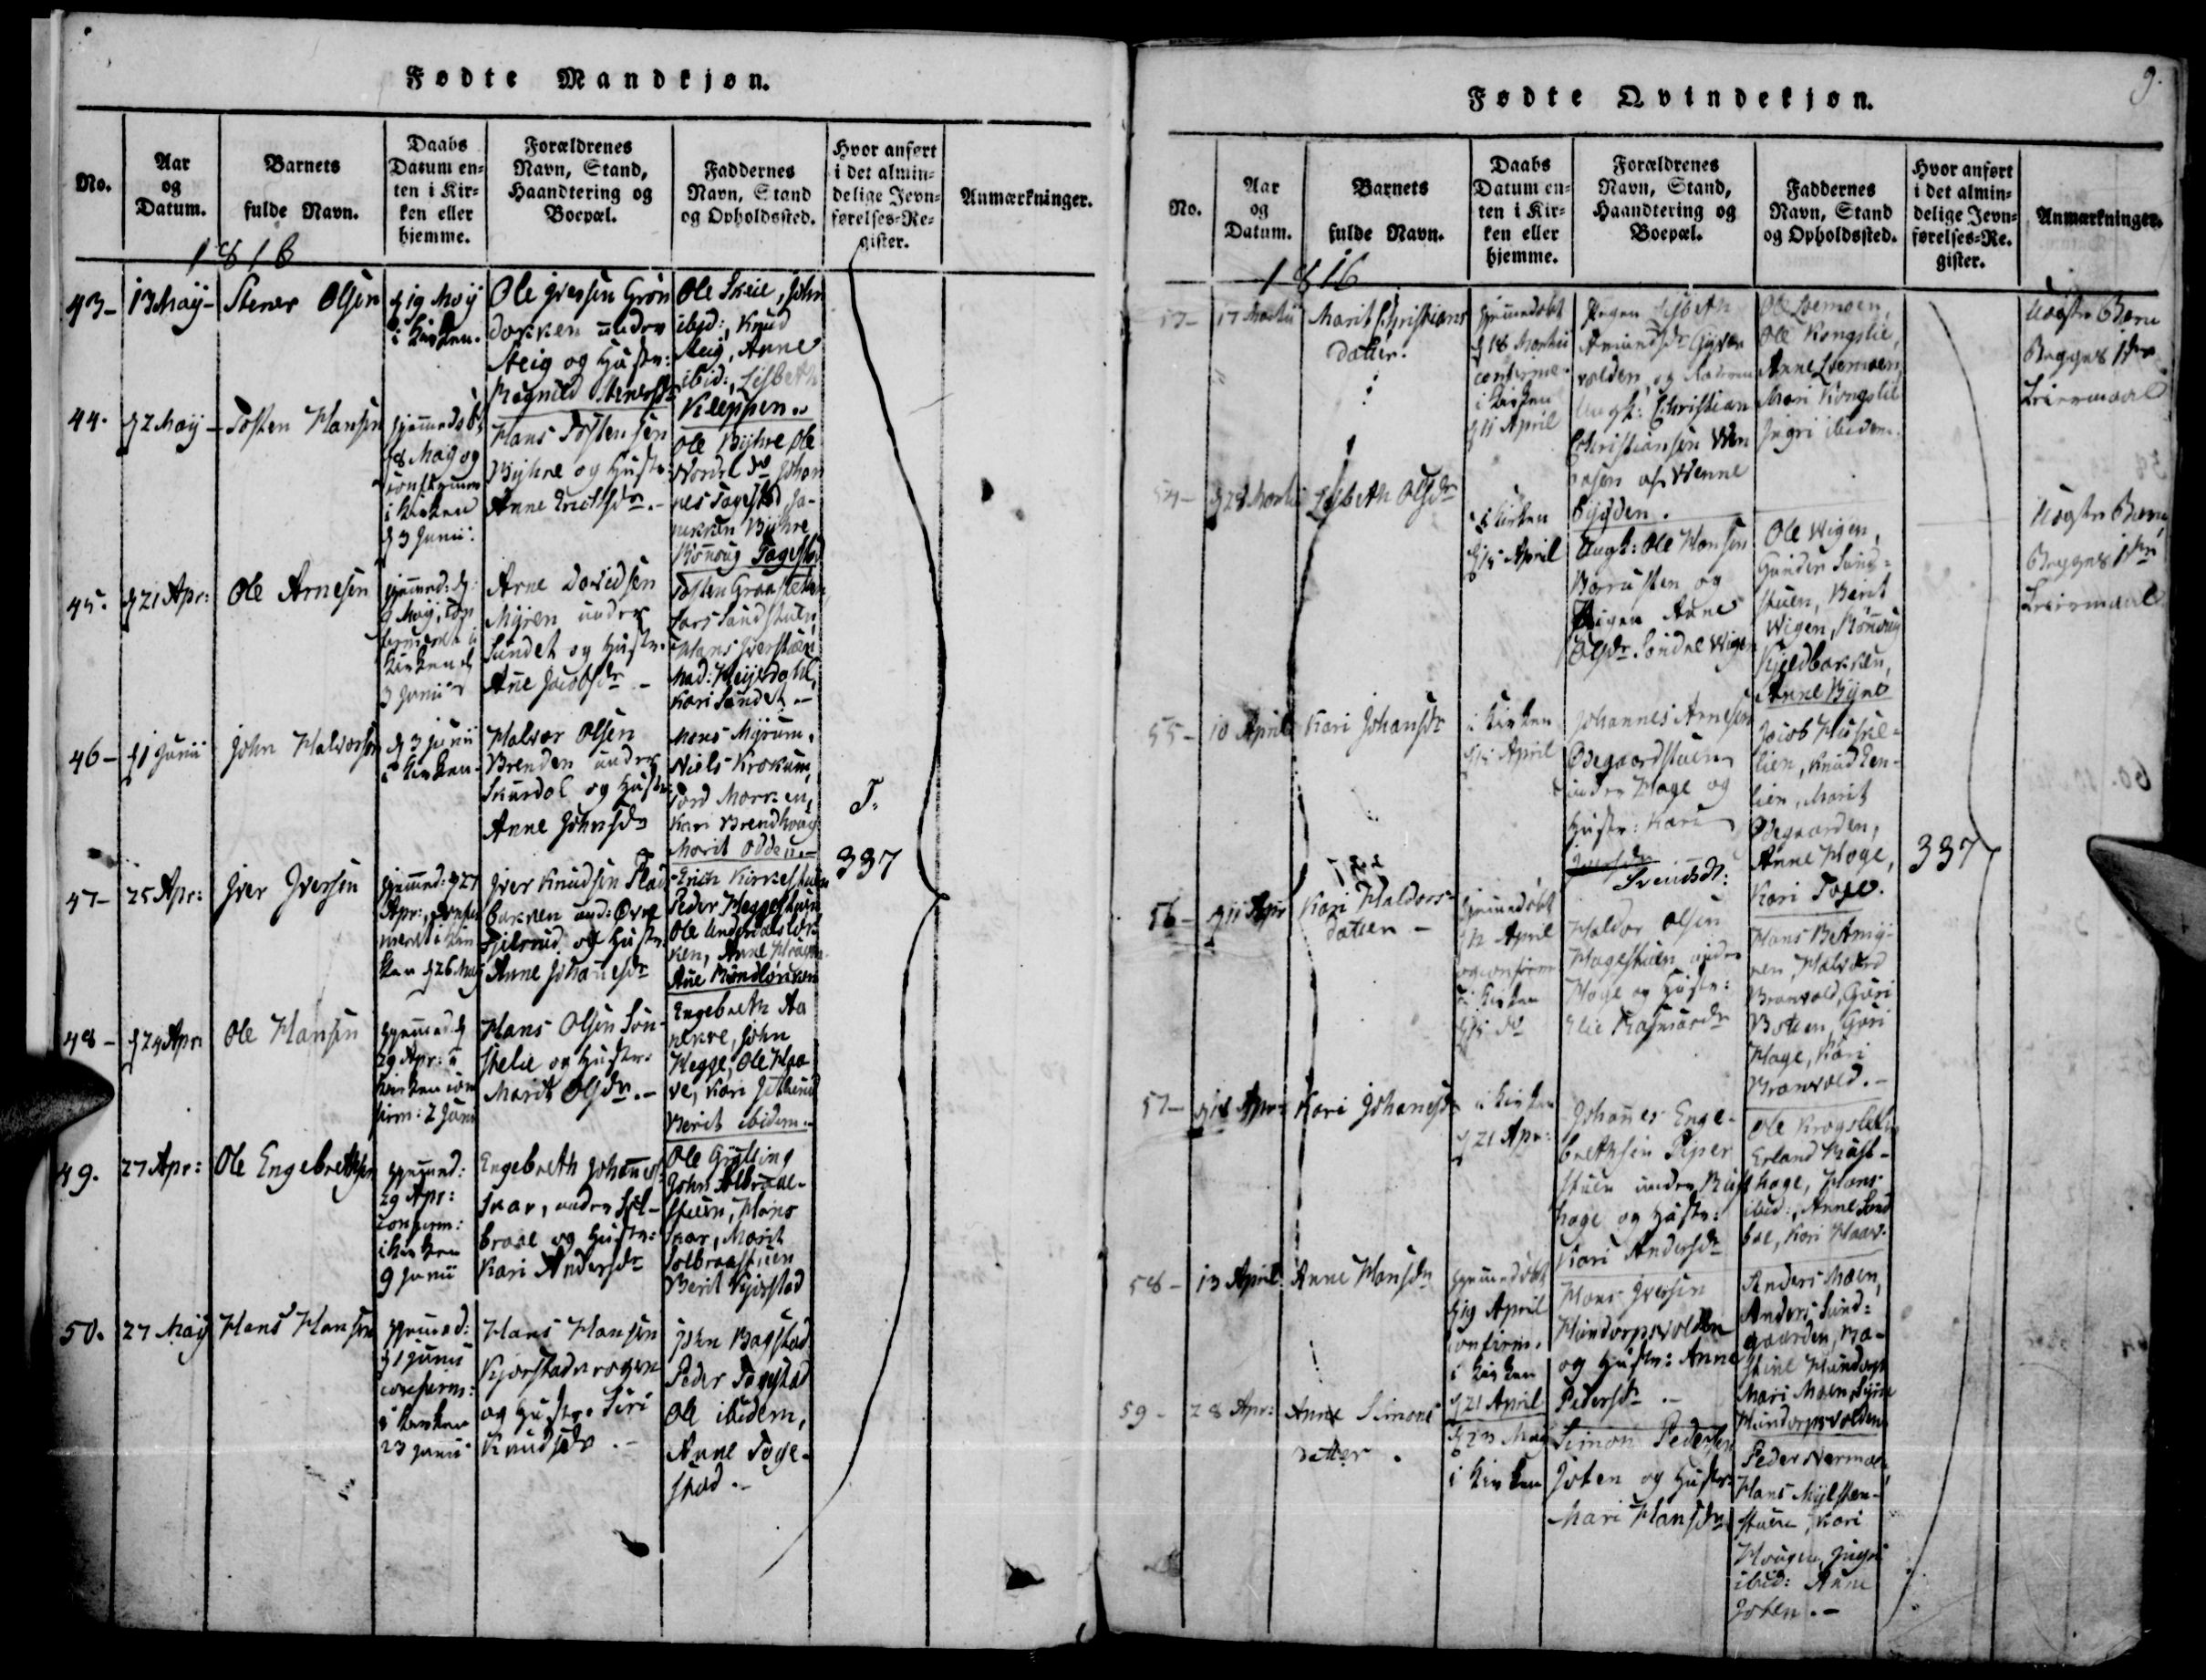 Fødte Mandkjøn.
No.
Aar
og
Datum.
Barnets
fulde Navn.
Daabs
Datum en-
ten i Kir-
ken eller
hjemme.
Forældrenes
Navn, Stand,
Haandtering og
Boepæl.
Faddernes
Navn, Stand
og Opholdssted.
Hvor anført
i det almin-
delige Jevn-
førelses-Re-
gister.
Anmærkninger.
1816
43-
13 Maÿ-
Stener Olsen
d 19 Maÿ
i Kirken.
Ole Iversen Grøn
dokken under
Steig og Hustr:
Ragnild Stenersdr
Ole Skeie, John
ibid:, Knud
Steig, Anne
ibid:, Lisbeth
Kleppen.
44.
d 2 Maÿ-
Tosten Hansen
hjemmedøbt
d 8 Maÿ og
i Kirken
d 3 Junii.
Hans Tostensen
Bÿhre og Hustr:
Anne Erichsdr.-
Ole Bÿhre Ole
Johan
nes Tagestad
Bÿhre
Rønnoug Tagestad
45.
d 21 Apr:
Ole Arnesen
hjemmed: d
9 Maÿ, con
firmeret i
Kirken d
3 Junii
Arne Davidsen
Mÿren under
Sundet og Hustr.
Ane Jacobsdr-
Tosten Graasletten
Lars Sundstuen
Hans
Mad:
Kari Sundet-
46-
d 1 Junii
John Halvorsen
d 3 Junii
i Kirken-
Halvor Olsen
Brenden under
Skurdal og Hustr:
Anne Johnsdr
Mons Mÿrum,
Niels Krokum,
Tord Morken,
Kari Brendhoug
Marit Odden.-
T.
337
47-
25 Apr:
Iver Iversen
hjemmed: d 27
Apr:, confir
meret i Kir
ken d 26 Maÿ
Iver Knudsen Flad
bakken und: Øvre
Fjelstad og Hustr.
Anne Johanesdr
Erich Kirkestuen
Peder Heggestuen
Ole
ken, Anne
Ane
48-
d 24 Apr.
Ole Hansen
hjemmed d
29 Apr: i
Kirken con
firm: 2 Juni
Hans Olsen Søn
stelie og Hustr:
Marit Olsdr.-
Engebreth Aa
kre, John
Hegge, Ole Haa
ve, Kari
Berit ibidem.
49.
27 Apr:
Ole Engebrethsen
hjemmed:
29 Apr:
confirm:
i Kirken
9 Junii
Engebreth Johanes:
Skar, under Sol-
braae og Hustr:
Kari Andersdr
Ole Gÿlling
John Solbraae-
stuen, Hans
Skar, Marit
Solbraastuen
Berit Kjørstad
50.
27 Maÿ
Hans Hansen
hjemmed:
d 1 Junii
confirm:
i Kirken
23 Junii
Hans Hansen
Kjorstadkrogen
og Hustr. Siri
Knudsdr.-
John Bagstad
Peder Tagestad
Ole ibidem,
Anne Tage-
stad.-
Fødte Qvindekjøn.
9.
No.
Aar
og
Datum.
Barnets
fulde Navn.
Daabs
Datum en-
ten i Kir-
ken eller
hjemme.
Forældrenes
Navn, Stand,
Haandtering og
Boepæl.
Faddernes
Navn, Stand
og Opholdssted.
Hvor anført
i det almin-
delige Jevn-
førelses-Re-
gister.
Anmærkninger.
1816
53-
17 Martii
Marit Christians
datter.
hjemmedøbt
d 18 Martii
confirme-
i Kirken
d 11 April
Pigen Lisbeth
Amundsdr
volden, og
Ungk: Christian
Christiansen
af Wenne
bÿgden.
Ole Loemoen,
Ole Kongslie,
Anne Loemoen,
Mari Kongslie
Ingri ibidem.
Uægte Barn
Begges 1ste
Leiermaal
54-
d 28 Martii
Lisbeth Olsdr
i Kirken
d 15 April
Ungk: Ole Hansen
og
Pigen Anne
Olsdr. Søndre Wigen
Ole Wigen,
Gunder Sund-
stuen, Berit
Wigen, Rønnoug
Kjeldbakken,
Anne Bÿre
Uægte Barn,
Begges 1ste
Leiermaal
55-
10 April
Kari Johansdr
i Kirken
d 15 April
Johannes Arnesen
Ødegaardstuen
under Hage og
Hustr: Kari
Svendsdr:
Jacob
lien, Knud
lien, Marit
Ødegaarden,
Anne Hage,
Kari Tage.
337
56-
d 11 Apr
Kari Haldors-
datter-
hjemmedøbt
d 12 April
og confirm
i Kirken
d 15 do
Haldor Olsen
Hagestuen under
Hage og Hustr:
Elie Rasmusdr
Hans
Branvold, Guri
Guri
Hage, Kari
Branvold.-
57-
d 18 Apr:
Kari Johanesdr
i Kirken
d 21 Apr:
Johanes Enge-
brethsen Piper
stuen under Rust
hage og Hustr:
Kari Andersdr
Ole Krogsletten
Erland Rust-
hage, Hans
ibid:, Anne Sand
boe, Kari Haave.
58-
13 April
Anne Hansdr
hjemmedøbt
d 19 April
confirm.
i Kirken
d 21 April
Hans Iversen
Hundorpsvolden
og Hustr: Anne
Pedersdr.-
Anders Moen,
Anders Sund-
gaarden,
Hundorp
Mari Moen,
Hundorpsvolden
59-
28 Apr:
Anne Simons
datter.
d 23 Maÿ
i Kirken
Simon Pedersen
Joten og Hustr:
Mari Hansdr
Peder
Hans
stuen, Kari
Haugen, Ingri
ibid: Anne
Joten.-